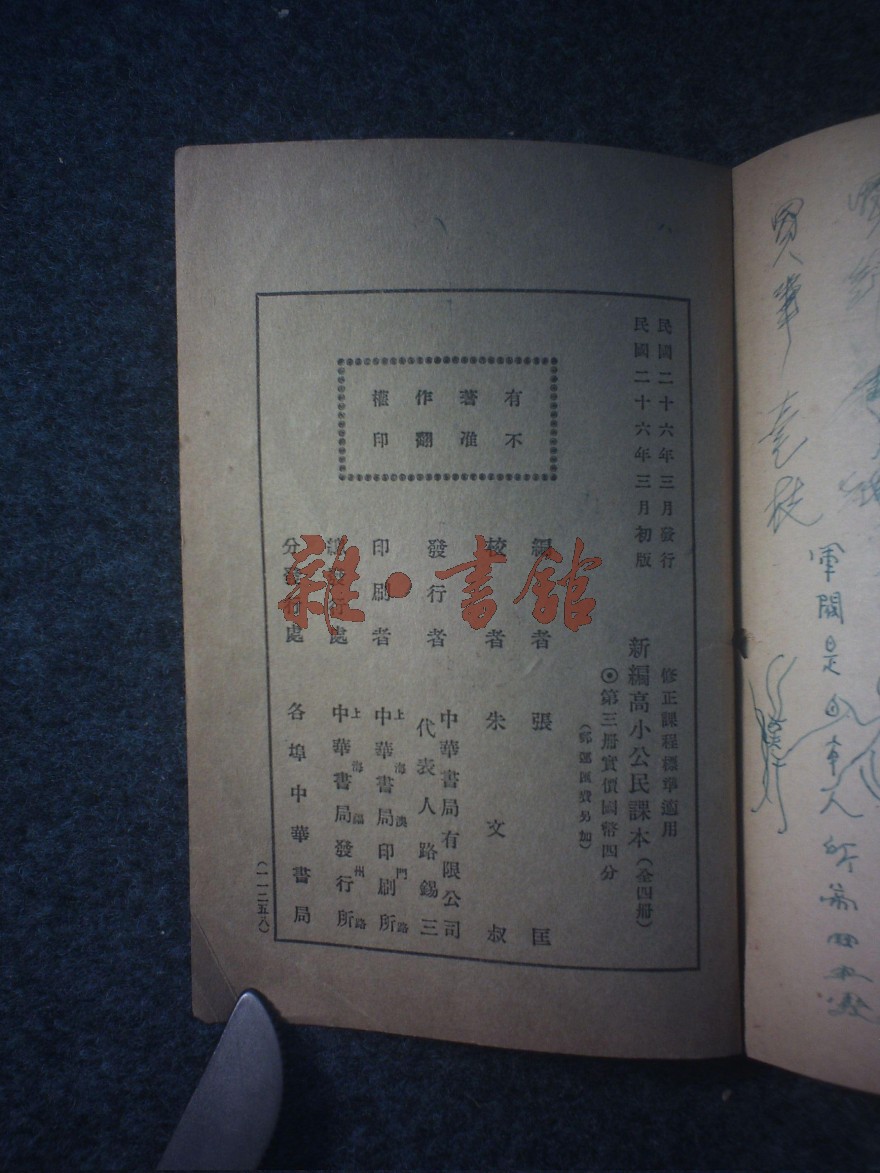 民國二十六年三月發行
民國二十六年三月初版
修正課程標準適用
新編高小公民課本(全四冊)
◉第三冊實價國幣四分
(郵運匯費另加)
有著作權
不准翻印
編者 張匡
校者 朱文叔
發行者 中華書局有限公司
代表人路錫三
印刷者 上海澳門路
中華書局印刷所
總發行處 上海福州路
中華書局發行所
分發行處 各埠中華書局
(一一二五八)
雜·書館
軍閥是